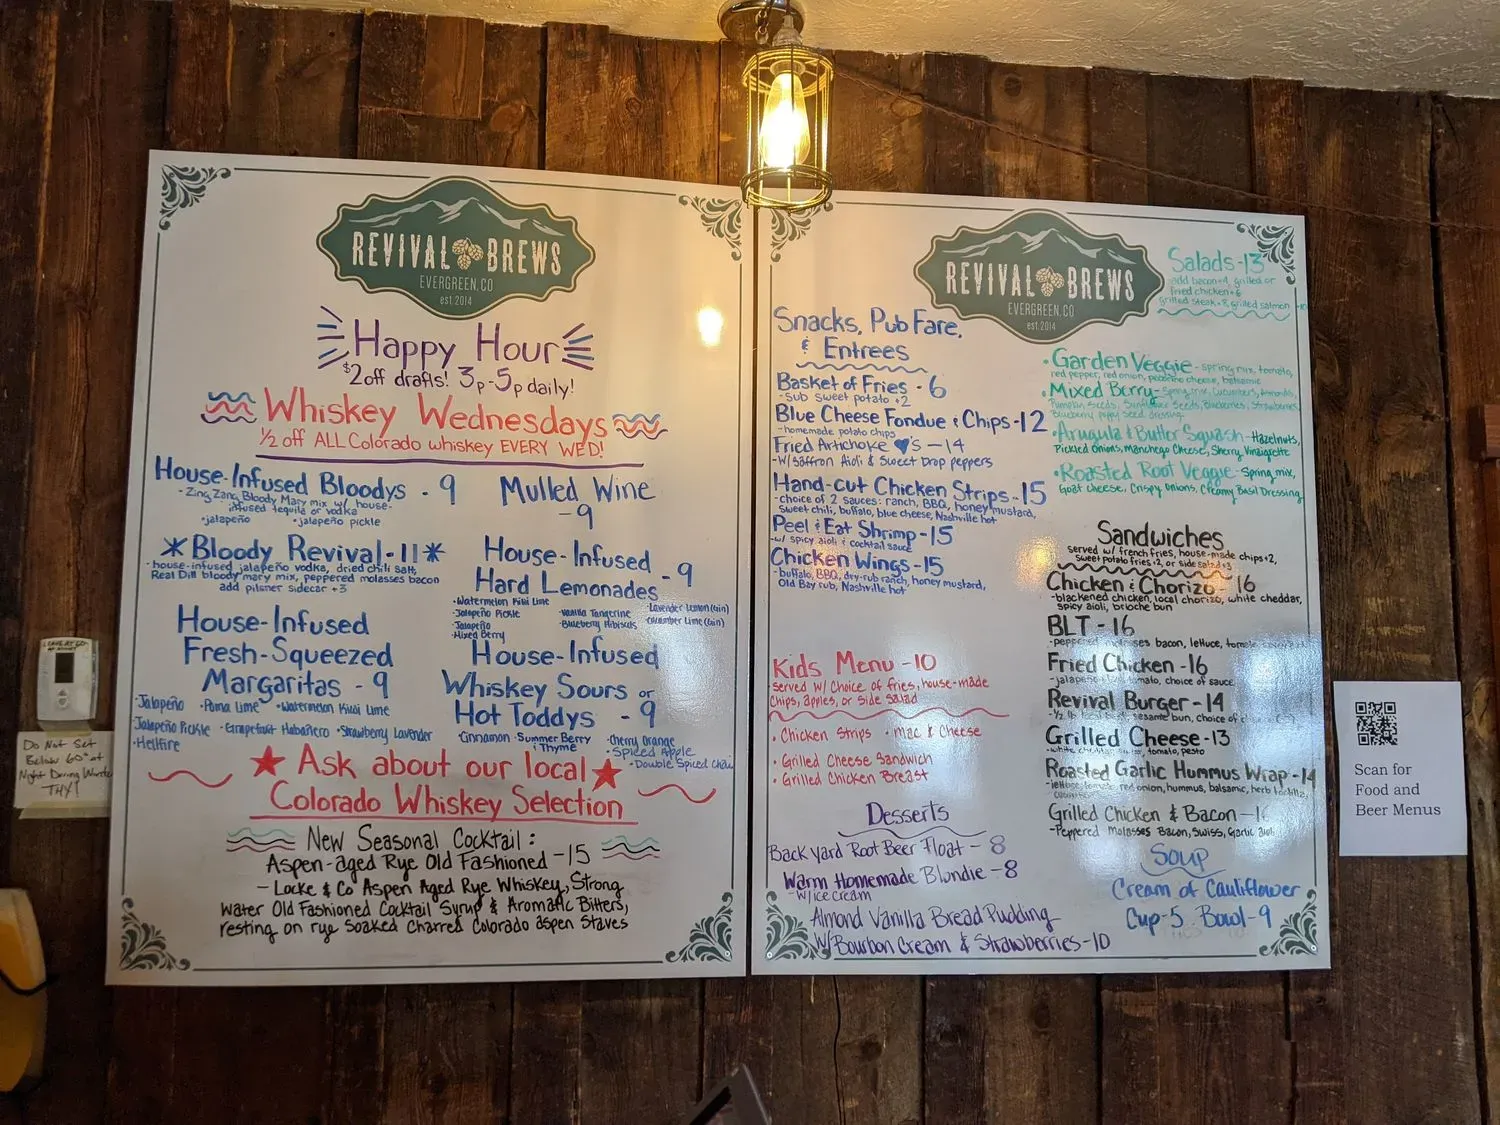 REVIVAL BREWS
EVERGREEN, CO
est. 2014
Happy Hour
$2 off drafts! 3p-5p daily!
Whiskey Wednesdays
1/2 off ALL Colorado whiskey EVERY WED!
House-Infused Bloodys - 9
- Zing Zang Bloody Mary mix w/ house-
infused tequila or vodka
• jalapeño • jalapeño pickle
Mulled Wine
- 9
*Bloody Revival - 11*
- house-infused jalapeño vodka, dried chili salt,
Real Dill bloody mary mix, peppered molasses bacon
add pilsner sidecar +3
House-Infused
Hard Lemonades - 9
• Watermelon Kiwi Lime
• Jalapeño Pickle
• Jalapeño
• Mixed Berry
• Vanilla Tangerine
• Blueberry Hibiscus
• Lavender Lemon (Gin)
• Cucumber Lime (Gin)
House-Infused
Fresh-Squeezed
Margaritas - 9
• Jalapeño • Pama Lime • Watermelon Kiwi Lime
Jalapeño Pickle • Grapefruit Habañero • Strawberry Lavender
• Hellfire
House-Infused
Whiskey Sours or
Hot Toddys - 9
• Cinnamon • Summer Berry
& Thyme
• Cherry Orange
• Spiced Apple
• Double Spiced Chai
★ Ask about our local ★
Colorado Whiskey Selection
New Seasonal Cocktail:
Aspen-aged Rye Old Fashioned - 15
- Locke & Co Aspen Aged Rye Whiskey, Strong
Water Old Fashioned Cocktail Syrup & Aromatic Bitters,
resting on rye soaked charred Colorado aspen staves
REVIVAL BREWS
EVERGREEN, CO
est. 2014
Snacks, Pub Fare,
& Entrees
Basket of Fries - 6
- Sub sweet potato +2
Blue Cheese Fondue & Chips - 12
- homemade potato chips
Fried Artichoke ♥'s - 14
- w/ Saffron Aioli & Sweet Drop peppers
Hand-cut Chicken Strips - 15
- choice of 2 sauces: ranch, BBQ, honey mustard,
sweet chili, buffalo, blue cheese, Nashville hot
Peel & Eat Shrimp - 15
- w/ spicy aioli & cocktail sauce
Chicken Wings - 15
- buffalo, BBQ, dry-rub ranch, honey mustard,
Old Bay rub, Nashville hot
Kids Menu - 10
- served w/ choice of fries, house-made
chips, apples, or side salad
• Chicken Strips • Mac & Cheese
• Grilled Cheese Sandwich
• Grilled Chicken Breast
Desserts
Backyard Root Beer Float - 8
Warm Homemade Blondie - 8
- w/ ice cream
Almond Vanilla Bread Pudding
w/ Bourbon Cream & Strawberries - 10
Salads - 13
add bacon +4, grilled or
fried chicken +6
grilled steak +8, grilled salmon +10
• Garden Veggie - spring mix, tomato,
red pepper, red onion, pecorino cheese, balsamic
• Mixed Berry - Spring mix, Cucumbers, Almonds,
Pumpkin Seeds, Sunflower Seeds, Blueberries, Strawberries,
Blueberry poppy seed dressing
• Arugula & Butter Squash - Hazelnuts,
Pickled Onions, Manchego Cheese, Sherry Vinaigrette
• Roasted Root Veggie - Spring mix,
Goat cheese, Crispy Onions, Creamy Basil Dressing
Sandwiches
served w/ french fries, house-made chips +2,
sweet potato fries +2, or side salad +3
Chicken & Chorizo - 16
- blackened chicken, local chorizo, white cheddar,
spicy aioli, brioche bun
BLT - 16
- peppered molasses bacon, lettuce, tomato
Fried Chicken - 16
- jalapeño tomato, choice of sauce
Revival Burger - 14
- 1/2 lb sesame bun, choice of
Grilled Cheese - 13
- white tomato, pesto
Roasted Garlic Hummus Wrap - 14
- lettuce, tomato, red onion, hummus, balsamic, herb tortilla,
Grilled Chicken & Bacon -
- Peppered Molasses Bacon, Swiss, Garlic aioli
Soup
Cream of Cauliflower
Cup - 5 Bowl - 9
Do Not Set
Below 60° at
Night During Winter
THX!
Scan for
Food and
Beer Menus